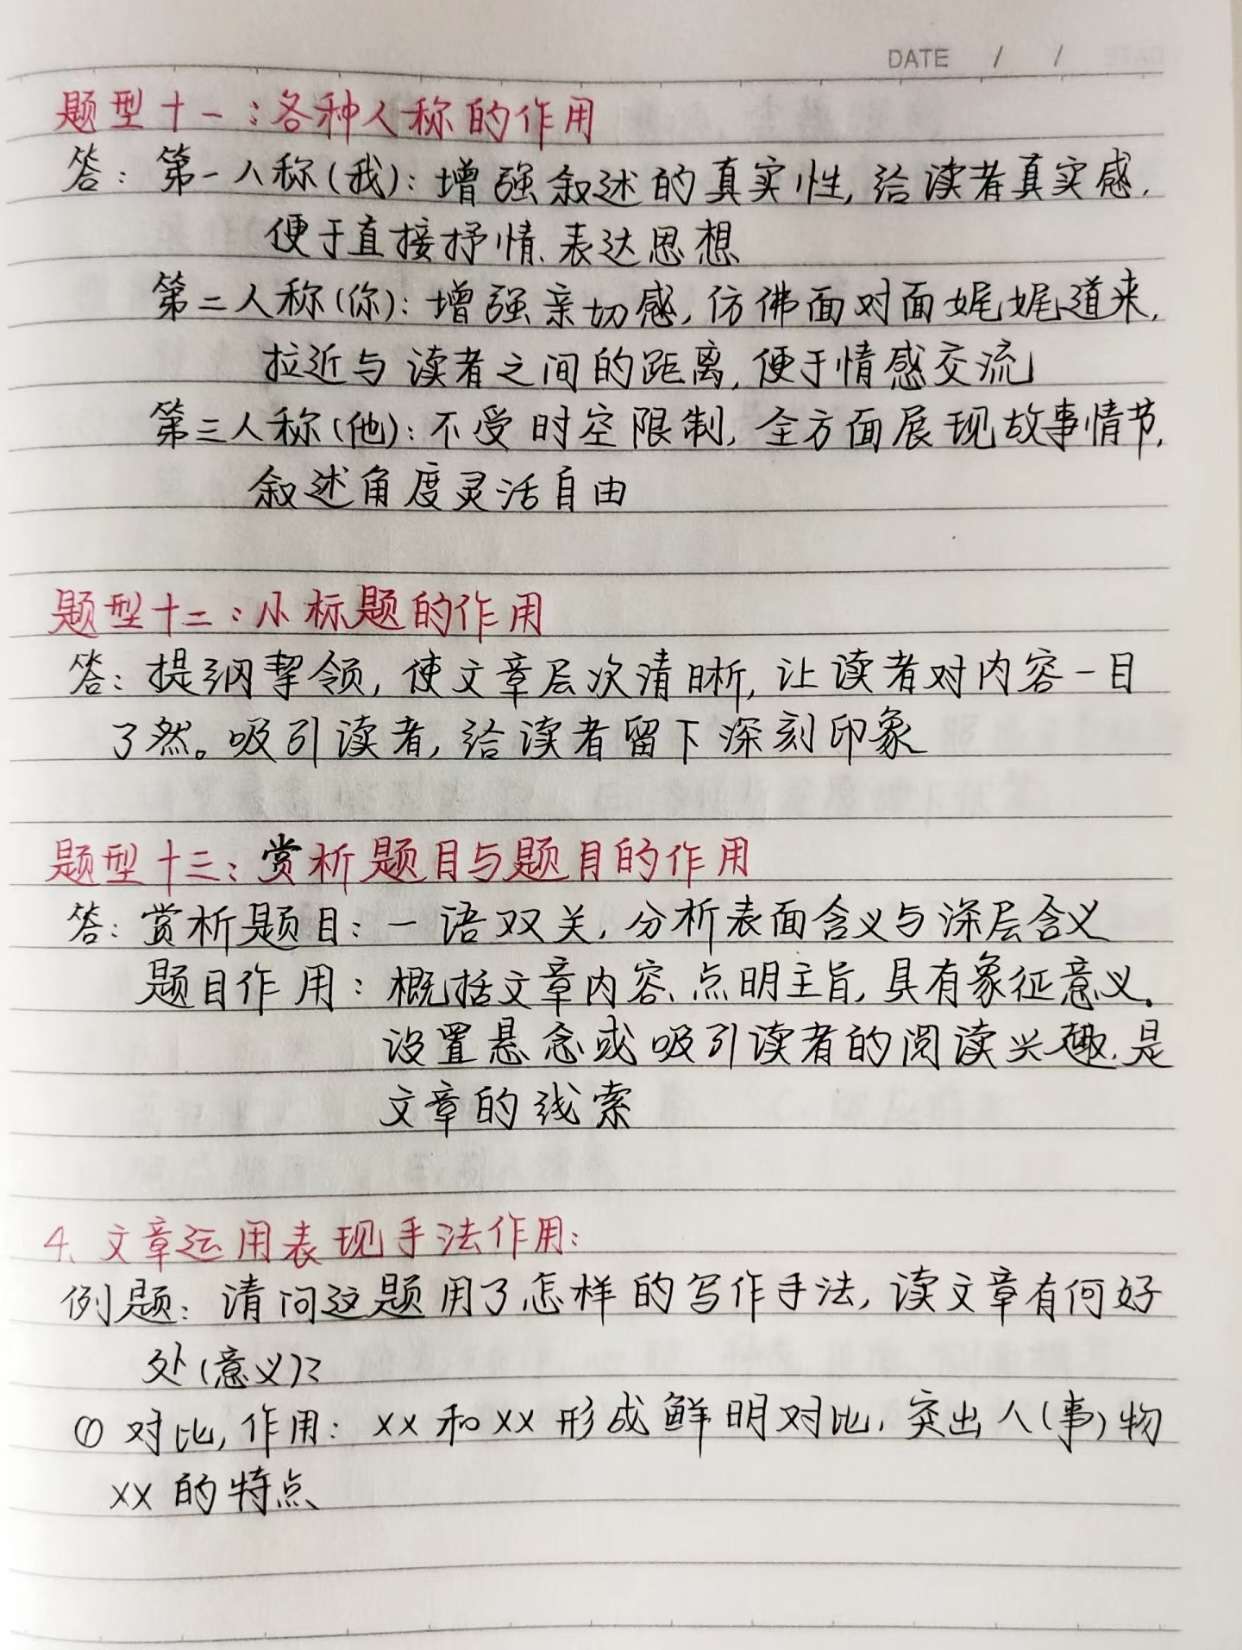 DATE / /
题型十一：各种人称的作用
答：第一人称(我)：增强叙述的真实性,给读者真实感.
便于直接抒情、表达思想
第二人称(你)：增强亲切感,仿佛面对面娓娓道来,
拉近与读者之间的距离,便于情感交流
第三人称(他)：不受时空限制,全方面展现故事情节,
叙述角度灵活自由
题型十二：小标题的作用
答：提纲挈领,使文章层次清晰,让读者对内容一目
了然。吸引读者,给读者留下深刻印象
题型十三：赏析题目与题目的作用
答：赏析题目：一语双关,分析表面含义与深层含义
题目作用：概括文章内容、点明主旨,具有象征意义。
设置悬念或吸引读者的阅读兴趣.是
文章的线索
4、文章运用表现手法作用：
例题：请问这题用了怎样的写作手法,读文章有何好
处(意义)?
① 对比,作用：xx和xx形成鲜明对比,突出人(事)物
xx的特点